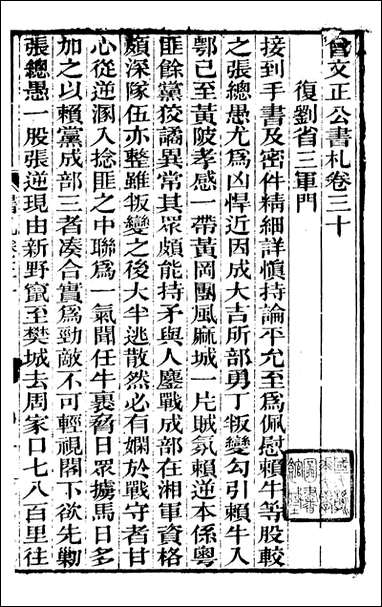 曾文正公書札卷三十
復劉省三軍門
接到手書及密件精細詳愼持論平允至爲佩慰賴牛等股較
之張總愚尤爲凶悍近因成大吉所部勇丁叛變勾引賴牛入
鄂已至黃陂孝感一帶黃岡團風麻城一片賊氛賴逆本係粵
匪餘黨狡譎異常其眾頗能持矛與人鏖戰成部在湘軍資格
頗深隊伍亦整雖叛變之後大半逃散然必有嫻於戰守者甘
心從逆溷入捻匪之中聯爲一氣聞任牛裹脅日眾擄馬日多
加之以賴黨成部三者凑合實爲勁敵不可輕視閣下欲先勦
張總愚一股張逆現由新野竄至樊城去周家口七八百里往